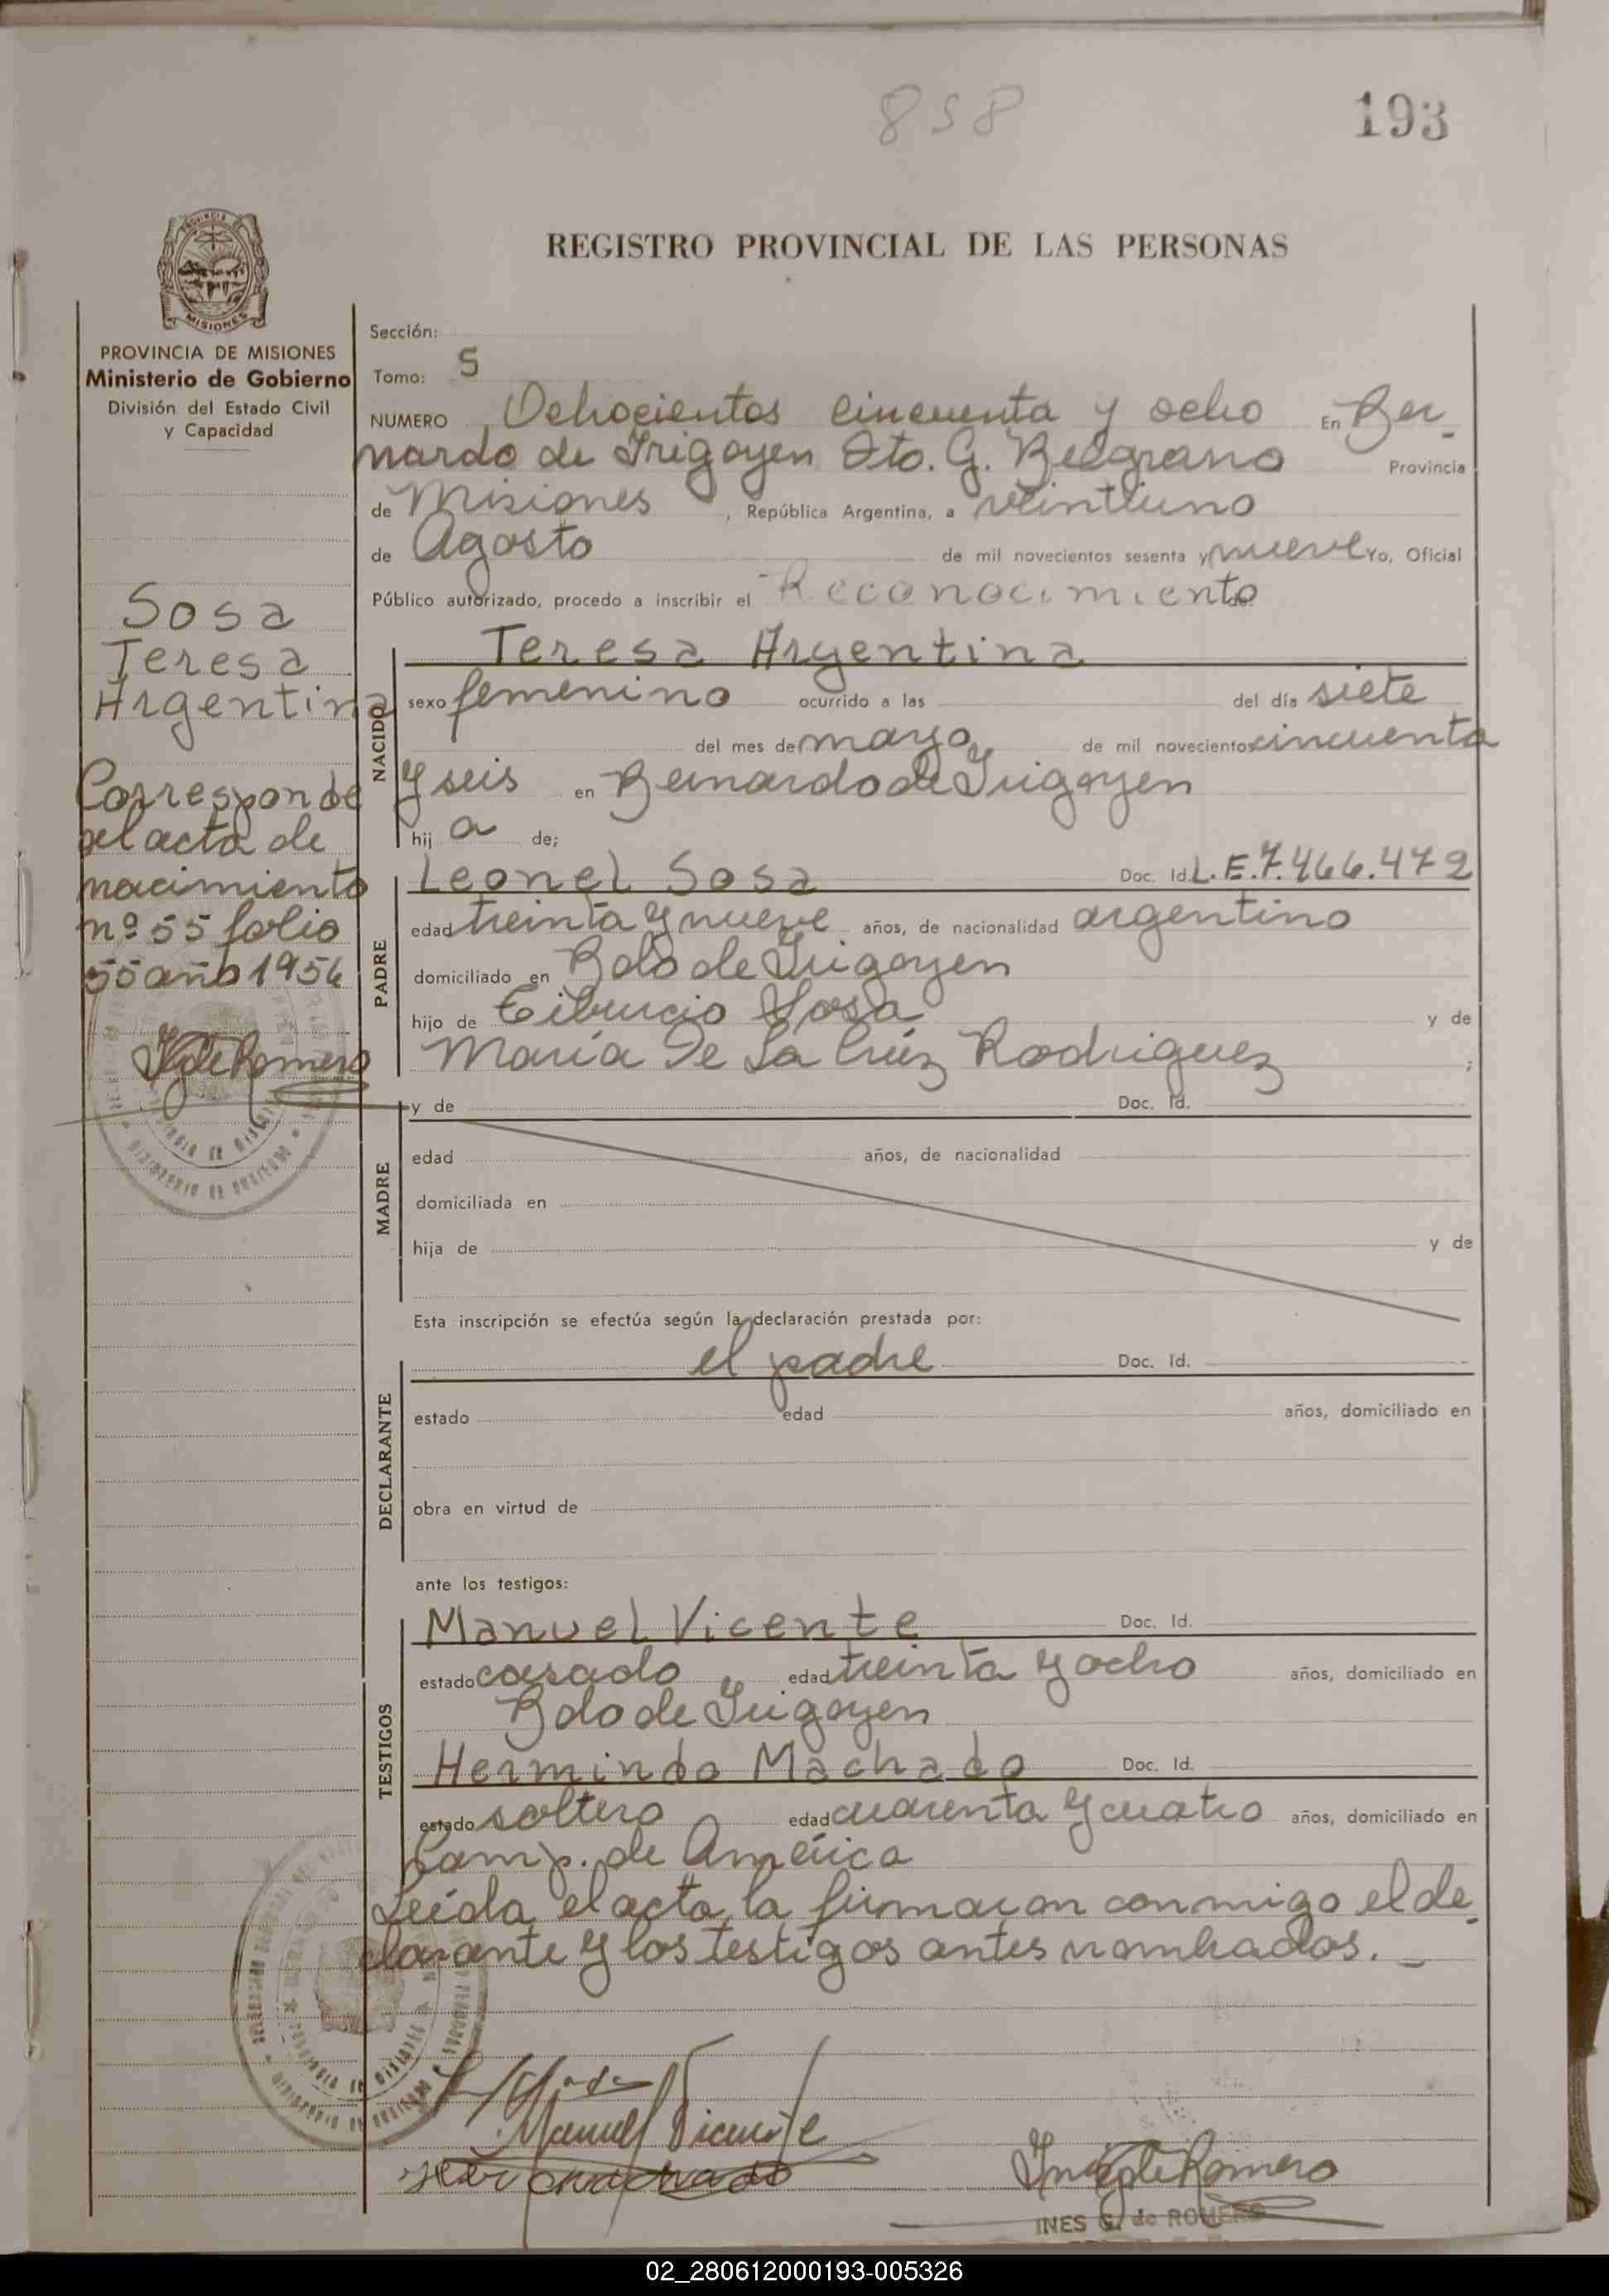 858
193
REGISTRO PROVINCIAL DE LAS PERSONAS
MISIONES
PROVINCIA DE MISIONES
Ministerio de Gobierno
División del Estado Civil
y Capacidad
Sosa
Teresa
Argentina
Corresponde
al acta de
nacimiento
nº 55 folio
55 año 1956
I G de Romero
Sección:
Tomo: 5
NUMERO Ochocientos cincuenta y ocho En Ber-
nardo de Irigoyen Dto. G. Belgrano Provincia
de Misiones, República Argentina, a veintiuno
de Agosto de mil novecientos sesenta y nueve Yo, Oficial
Público autorizado, procedo a inscribir el Reconocimiento de:
NACIDO
Teresa Argentina
sexo femenino ocurrido a las del día siete
del mes de mayo de mil novecientos cincuenta
y seis en Bernardo de Irigoyen
hij a de;
PADRE
Leonel Sosa Doc. Id. L.E. 7.466.472
edad treinta y nueve años, de nacionalidad argentino
domiciliado en Bdo de Irigoyen
hijo de Tiburcio Sosa y de
María De La Cruz Rodriguez ;
MADRE
y de Doc. Id.
edad años, de nacionalidad
domiciliada en
hija de y de
Esta inscripción se efectúa según la declaración prestada por:
DECLARANTE
el padre Doc. Id.
estado edad años, domiciliado en
obra en virtud de
ante los testigos:
TESTIGOS
Manuel Vicente Doc. Id.
estado casado edad treinta y ocho años, domiciliado en
Bdo de Irigoyen
Hermindo Machado Doc. Id.
estado soltero edad cuarenta y cuatro años, domiciliado en
Camp. de América
Leída el acta, la firmaron conmigo el de-
clarante y los testigos antes nombrados.
Manuel Vicente
Her Machado
Inés G de Romero
INES G. de ROMERO
02_280612000193-005326